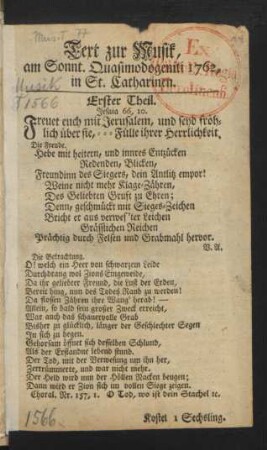 Musik 77
Text zur Musik,
am Sonnt. Quasimodogeniti 1762,
in St. Catharinen.
Ex
Musik
T1566
Erster Theil.
Jesaia 66, 10.
Freuet euch mit Jerusalem, und seyd fröh-
lich über sie, - - - Fülle ihrer Herrlichkeit.
Die Freude.
Hebe mit heitern, und innres Entzücken
Redenden, Blicken,
Freundinn des Siegers, dein Antlitz empor!
Weine nicht mehr Klage-Zähren,
Des Geliebten Gruft zu Ehren;
Denn, geschmückt mit Sieges-Zeichen
Bricht er aus verwes'ter Leichen
Gräßlichen Reichen
Prächtig durch Felsen und Grabmahl hervor.
V. A.
Die Betrachtung.
O! welch ein Heer von schwarzem Leide
Durchdrang wol Zions Eingeweide,
Da ihr geliebter Freund, die Lust der Erden,
Bereit hing, nun des Todes Raub zu werden!
Da flossen Zähren ihre Wang' herab! —
Allein, so bald sein großer Zweck erreicht,
War auch das schauervolle Grab
Bisher zu glücklich, länger der Geschlechter Segen
In sich zu hegen.
Gehorsam öfnet sich desselben Schlund,
Als der Erstandne lebend stund.
Der Tod, mit der Verwesung um ihn her,
Zertrümmerte, und war nicht mehr.
Der Held wird nun der Höllen Nacken beugen;
Dann wird er Zion sich im vollen Siege zeigen.
Choral. Nr. 157, 1. O Tod, wo ist dein Stachel ꝛc.
Kostet 1 Sechsling.
1566.